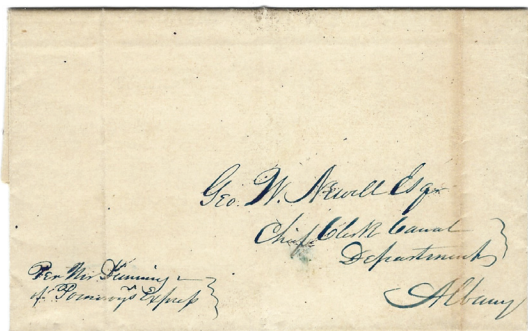 Geo. W. Newell Esqr
Chief Clerk Canal
Department
Albany
Per Mr Dunning
of Pomeroy's Express